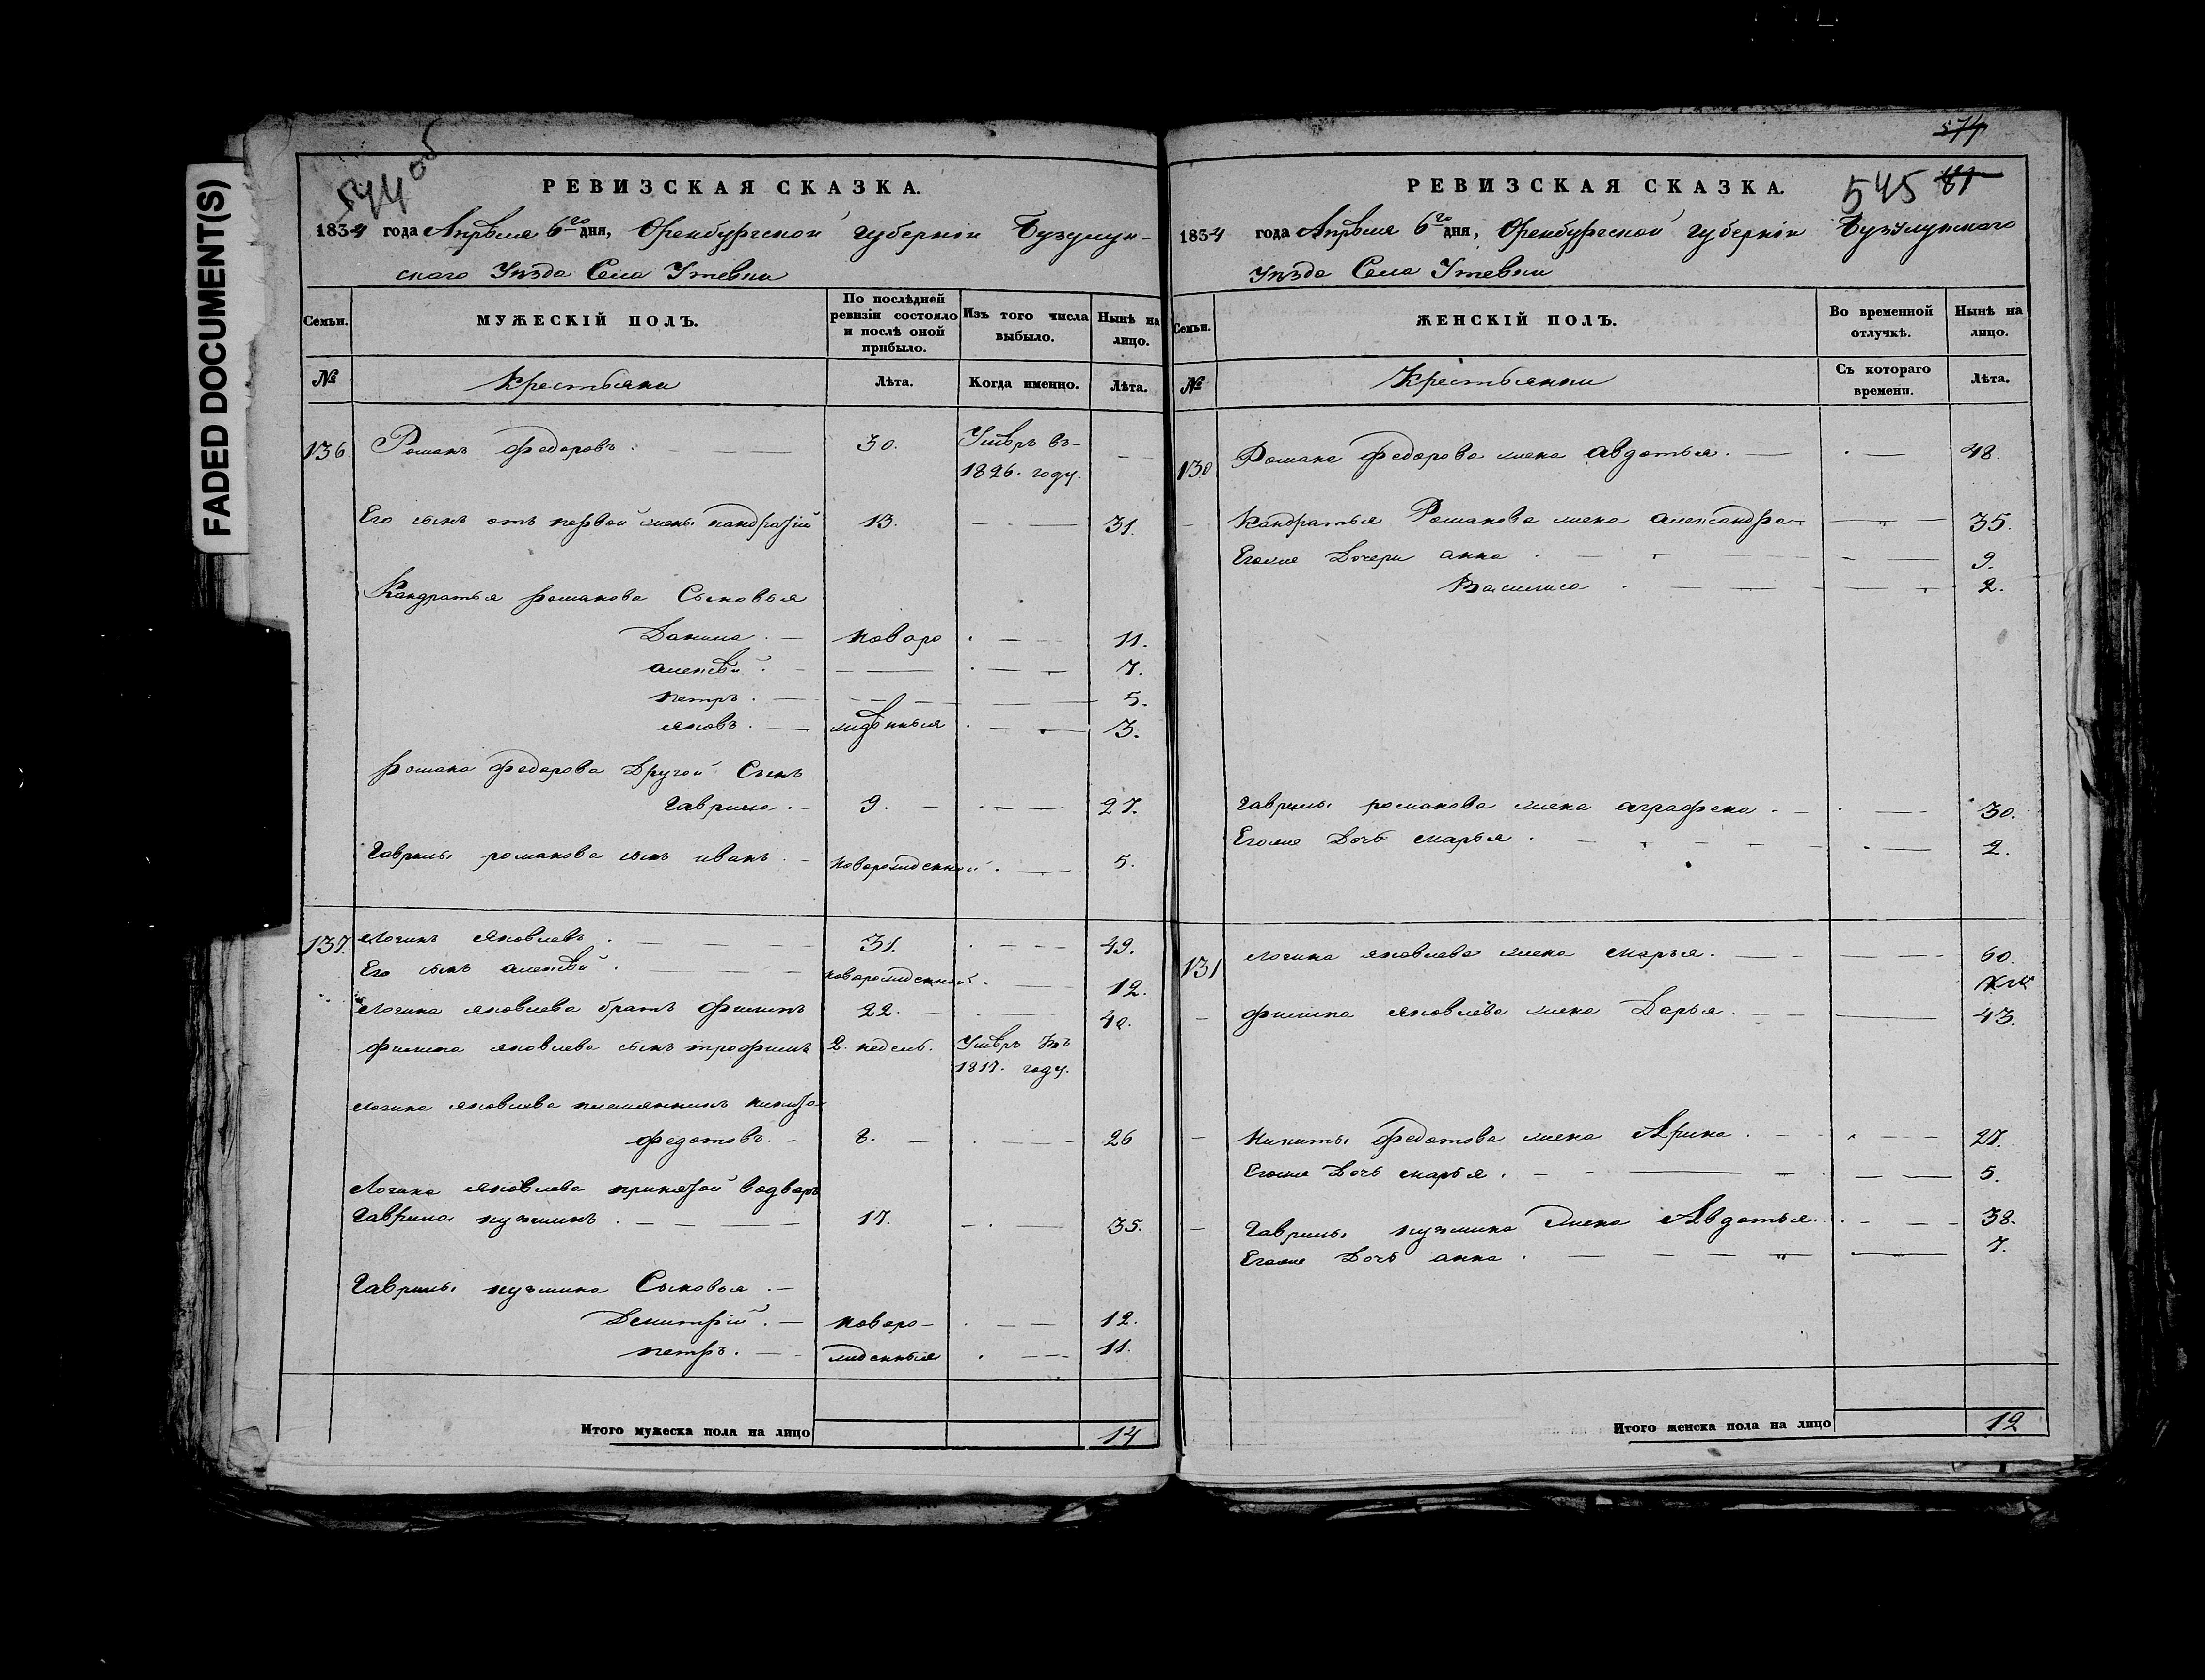 FADED DOCUMENT(S)
544 об
РЕВИЗСКАЯ СКАЗКА.
1834 года Апрѣля 6го дня, Оренбургской губерніи Бузулук-
скаго Уѣзда Села Утевки
Семьи. МУЖЕСКІЙ ПОЛЪ. По послѣдней ревизіи состояло и послѣ оной прибыло. Изъ того числа выбыло. Нынѣ на лицо.
№ Крестьяни Лѣта. Когда именно. Лѣта.
136. Романъ Федоровъ. 30. Умѣръ въ-
1826. году.
Его сынъ отъ первой жены кандратій 13. 31.
Кандратья романова Сыновья
Данила. новоро 11.
алексѣй. 7.
петръ. 5.
яковъ. жидѣнныя 3.
романа федорова Другой Сынъ
гаврило. 9. 27.
гаврилы романова сынъ иванъ. новорожденной 5.
137. Логинъ яковлевъ. 31. 49.
Его сынъ алексѣй. новорожденной 12.
Логина яковлева братъ филипъ 22. 40.
филипа яковлева сынъ трофимъ 2. недель. Умѣръ въ
1817. году.
Логина яковлева племянникъ никита
федотовъ. 8. 26
Логина яковлева принятой водворъ
гаврила кузминъ. 17. 35.
гаврилы кузмина Сыновья.
Демитрій. новоро- 12.
петръ. жденныя 11.
Итого мужеска пола на лицо 14
574
545 61
РЕВИЗСКАЯ СКАЗКА.
1834 года Апрѣля 6го дня, Оренбургской губерніи Бузулукскаго
Уѣзда Села Утевки
Семьи. ЖЕНСКІЙ ПОЛЪ. Во временной отлучкѣ. Нынѣ на лицо.
№ Крестьянки Съ котораго времени. Лѣта.
130 Романа федорова жена авдотья. 48.
Кандратья Романова жена александра 35.
Егоже Дочери анна. 9.
Василиса 2.
гаврилы романова жена аграфена. 30.
Егоже Дочь марья. 2.
131 Логина яковлева жена марья. 60.
филипа яковлева жена Дарья. 43.
Никиты федотова жена Арина. 27.
Егоже Дочь марья. 5.
гаврилы кузмина жена Авдотья. 38.
Егоже Дочь анна. 7.
Итого женска пола на лицо 12